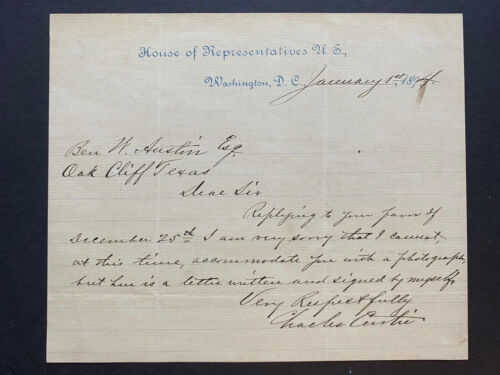 House of Representatives U. S.,
Washington, D. C., January 1st, 1894.
Ben W. Austin Esq.
Oak Cliff Texas
Dear Sir
Replying to your favor of
December 25th I am very sorry that I cannot,
at this time, accommodate you with a photograph,
but here is a letter written and signed by myself.
Very Respectfully
Charles Curtis